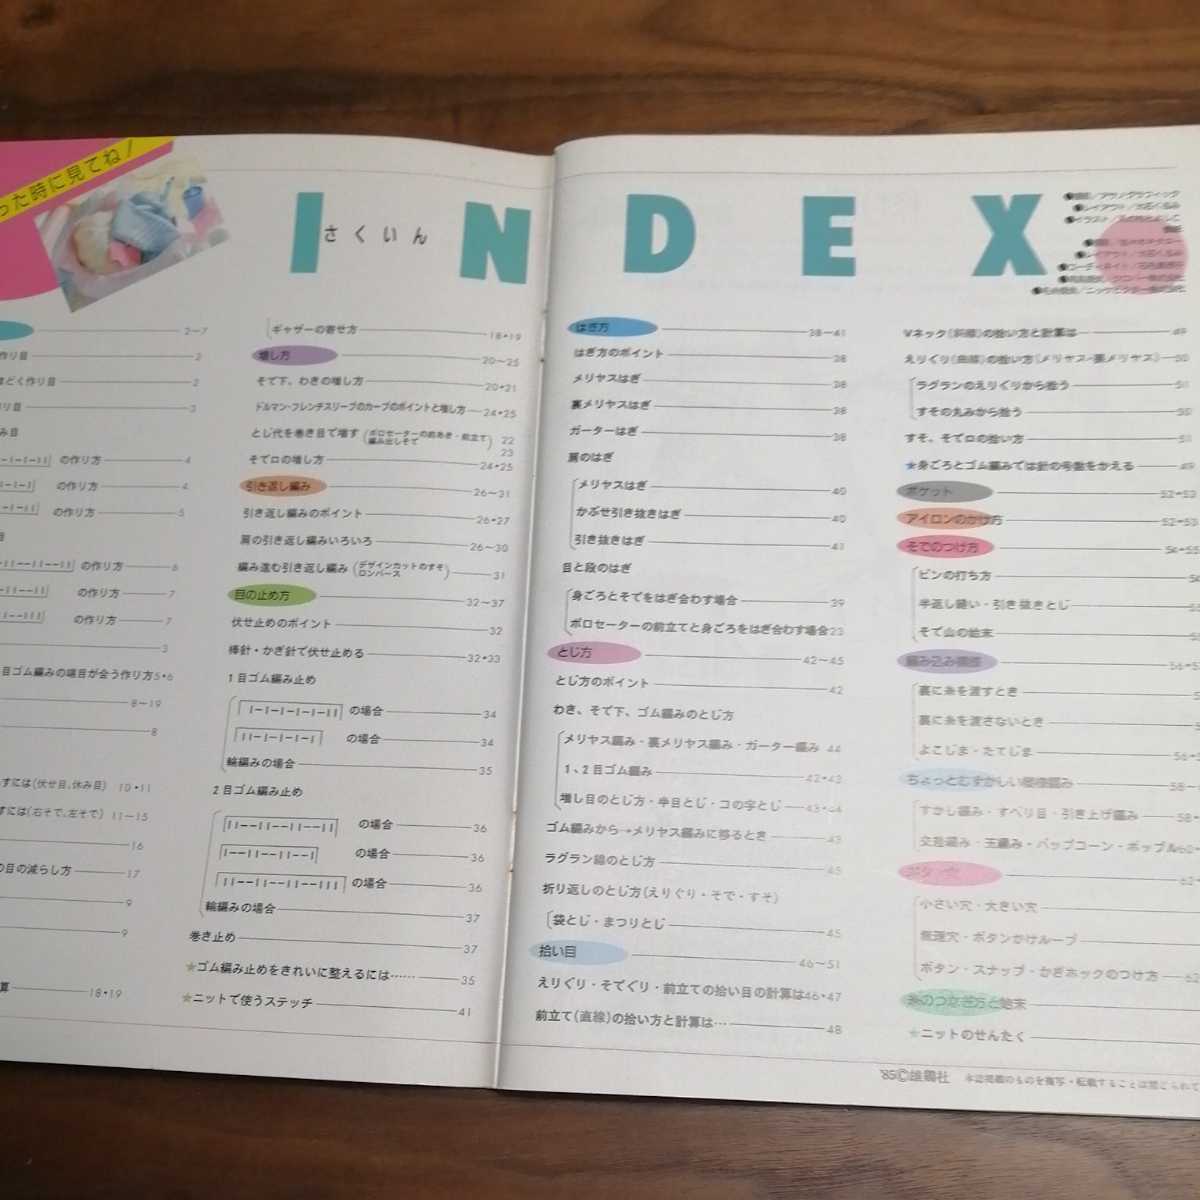 った時に見てね！
INDEX
さくいん
2～7
作り目 2
ほどく作り目 2
り目 3
み目
の作り方 4
の作り方 4
の作り方 5
目
の作り方 6
の作り方 7
の作り方 7
3
目ゴム編みの端目が合う作り方 5・6
8～19
8
すには(伏せ目、休み目) 10・11
すには(右そで、左そで) 11～15
16
の目の減らし方 17
9
9
算 18・19
ギャザーの寄せ方 18・19
増し方 20～25
そで下、わきの増し方 20・21
ドルマン・フレンチスリーブのカーブのポイントと増し方 24・25
とじ代を巻き目で増す(ポロセーターの前あき・前立て 編み出しそで) 22 23
そで口の増し方 24・25
引き返し編み 26～31
引き返し編みのポイント 26・27
肩の引き返し編みいろいろ 26～30
編み進む引き返し編み(デザインカットのすそ ロンパース) 31
目の止め方 32～37
伏せ止めのポイント 32
棒針・かぎ針で伏せ止める 32・33
1目ゴム編み止め
の場合 34
の場合 34
輪編みの場合 35
2目ゴム編み止め
の場合 36
の場合 36
の場合 36
輪編みの場合 37
巻き止め 37
★ゴム編み止めをきれいに整えるには…… 35
★ニットで使うステッチ 41
はぎ方 38～41
はぎ方のポイント 38
メリヤスはぎ 38
裏メリヤスはぎ 38
ガーターはぎ 38
肩のはぎ
メリヤスはぎ 40
かぶせ引き抜きはぎ 40
引き抜きはぎ 41
目と段のはぎ
身ごろとそでをはぎ合わす場合 39
ポロセーターの前立てと身ごろをはぎ合わす場合 23
とじ方 42～45
とじ方のポイント 42
わき、そで下、ゴム編みのとじ方
メリヤス編み・裏メリヤス編み・ガーター編み 44
1、2目ゴム編み 42・43
増し目のとじ方・半目とじ・コの字とじ 43・44
ゴム編みから→メリヤス編みに移るとき 43
ラグラン線のとじ方 45
折り返しのとじ方(えりぐり・そで・すそ)
袋とじ・まつりとじ 45
拾い目 46～51
えりぐり・そでぐり・前立ての拾い目の計算は 46・47
前立て(直線)の拾い方と計算は… 48
Vネック(斜線)の拾い方と計算は 49
えりぐり(曲線)の拾い方(メリヤス・裏メリヤス) 50
ラグランのえりぐりから拾う 50
すその丸みから拾う 50
すそ、そで口の拾い方 51
★身ごろとゴム編みでは針の号数をかえる 49
ポケット 52・53
アイロンのかけ方 52・53
そでのつけ方 54・55
ピンの打ち方
半返し縫い・引き抜きとじ
そで山の始末
編み込み模様 56・5
裏に糸を渡すとき
裏に糸を渡さないとき
よこじま・たてじま 56・
ちょっとむずかしい模様編み 58～
すかし編み・すべり目・引き上げ編み 58・
交差編み・玉編み・パップコーン・ポップル 60・
ボタン穴 62・
小さい穴・大きい穴
無理穴・ボタンかけループ
ボタン・スナップ・かぎホックのつけ方 62
糸のつなぎ方と始末
★ニットのせんたく
'85©雄鶏社 本誌掲載のものを複写・転載することは禁じられて